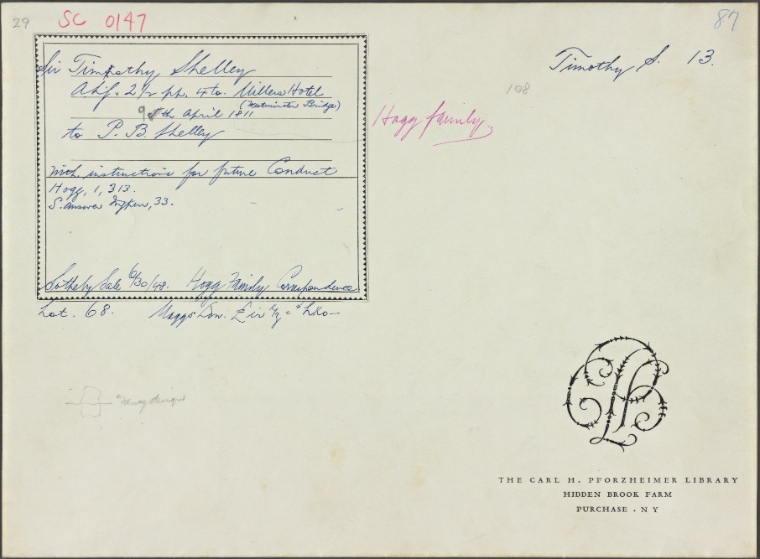 29
SC 0147
87
Sir Timothy Shelley
2 1/2 pp. 4to. Millers Hotel
(Westminster Bridge)
th April 1811
to P. B. Shelley
with instructions for future Conduct
Hogg, 1, 313.
S. answer Ingpen, 33.
Sotheby Sale 6/30/48. Hogg Family Correspondence
Lot. 68. Maggs
Timothy S. 13.
108
Hogg family
THE CARL H. PFORZHEIMER LIBRARY
HIDDEN BROOK FARM
PURCHASE . N Y